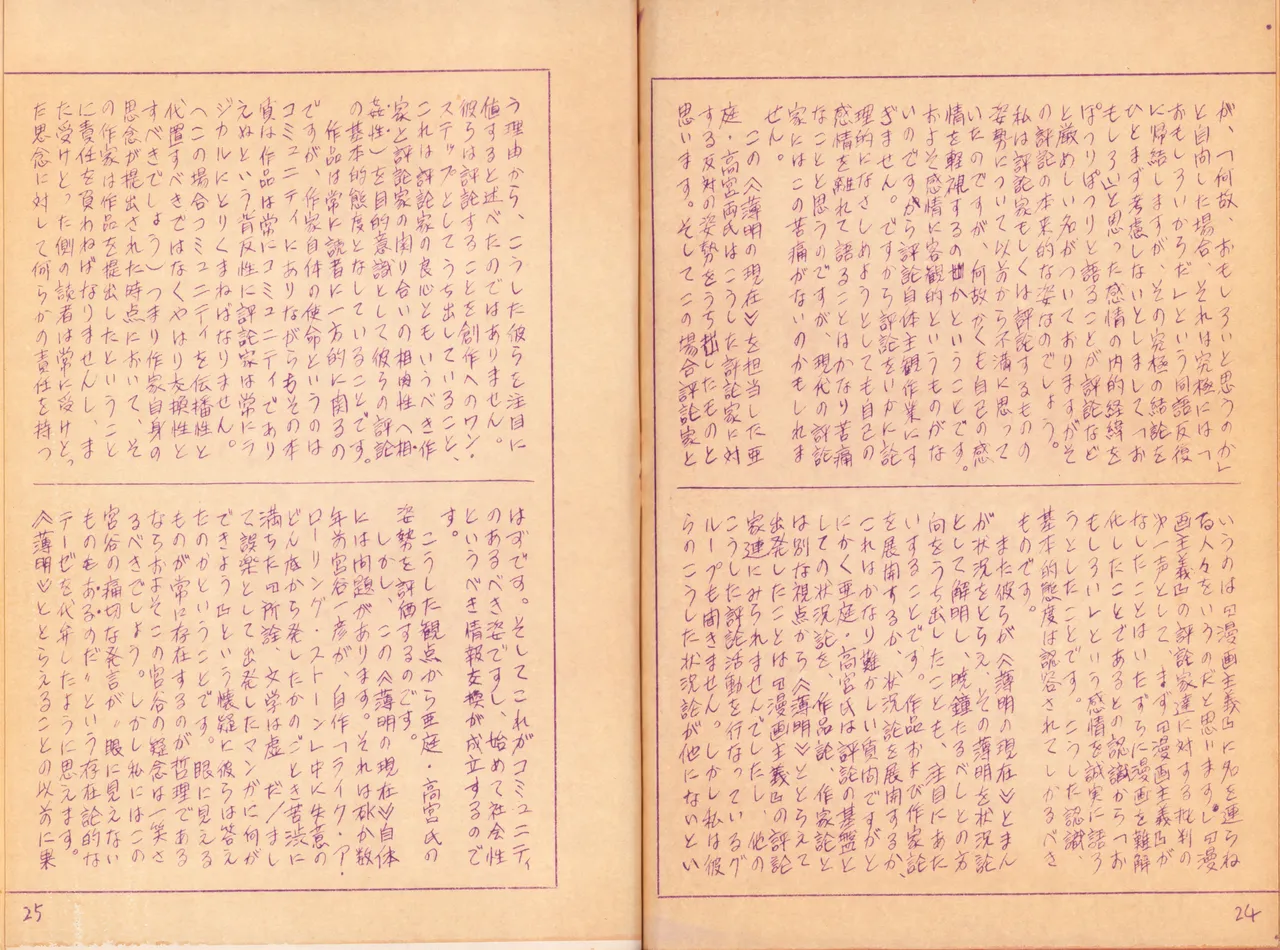 が、「何故、おもしろいと思うのか」
と自問した場合、それは究極には「
おもしろいからだ」という同語反復
に帰結しますが、その究極の結論を
ひとまず考慮しないとしまして「お
もしろい」と思った感情の内的経緯を
ぽつりぽつりと語ることが評論など
と厳めしい名がついておりますがそ
の評論の本来的な姿なのでしょう。
私は評論家もしくは評論するものの
姿勢について以前から不満に思って
いたのですが、何故かくも自己の感
情を軽視するのかということです。
およそ感情に客観的というものがな
いのですから評論自体主観作業にす
ぎません。ですから評論をいかに論
理的になさしめようとしても自己の
感情を離れて語ることはかなり苦痛
なことと思うのですが、現代の評論
家にはこの苦痛がないのかもしれま
せん。
この《薄明の現在》を担当した亜
庭・高宮両氏はこうした評論家に対
する反対の姿勢をうち出したものと
思います。そしてこの場合評論家と
いうのは『漫画主義』に名を連らね
る人々をいうのだと思います。『漫
画主義』の評論家達に対する批判の
第一声として、まず『漫画主義』が
なしたことはいたずらに漫画を難解
化したことであるとの認識から「お
もしろい」という感情を誠実に語ろ
うとしたことです。こうした認識、
基本的態度は認容されてしかるべき
ものです。
また彼らが《薄明の現在》とまん
が状況をとらえ、その薄明を状況論
として解明し、暁鐘たるべしとの方
向をうち出したことも、注目にあた
いすることです。作品および作家論
を展開するか、状況論を展開するか、
これはかなり難かしい質問ですがと
にかく亜庭・高宮氏は評論の基盤と
しての状況論を、作品論、作家論と
は別な視点から《薄明》ととらえて
出発したことは『漫画主義』の評論
家達にみられませんでしたし、他の
こうした評論活動を行なっているグ
ループも聞きません。しかし私は彼
らのこうした状況論が他にないとい
24
う理由から、こうした彼らを注目に
値すると述べたのではありません。
彼らは評論することを創作へのワン・
ステップとしてうち出していること、
これは評論家の良心ともいうべき作
家と評論家の関り合いの相肉性へ相
姦性」を目的意識として彼らの評論
の基本的態度となしていることです。
作品は常に読者に一方的に関るの
ですが、作家自体の使命というのは
コミュニティにありながらもその本
質は作品は常にコミュニティであり
えぬという背反性に評論家は常にラ
ジカルにとりくまねばなりません。
(この場合コミュニティを伝播性と
代置すべきではなくやはり交換性と
すべきでしょう)つまり作家自身の
思念が提出された時点において、そ
の作家は作品を提出したということ
に責任を負わねばなりませんし、ま
た受けとった側の読者は常に受けとっ
た思念に対して何らかの責任を持つ
はずです。そしてこれがコミュニティ
のあるべき姿ですし、始めて社会性
というべき情報交換が成立するので
す。
こうした観点から亜庭・高宮氏の
姿勢を評価するのです。
しかし、この《薄明の現在》自体
には問題があります。それは何か数
年前宮谷一彦が、自作「ライク・ア・
ローリング・ストーン」中に失意の
どん底から発したかのごとき苦渋に
満ちた『所詮、文学は虚 だ!まし
て誤楽として出発したマンガに何が
できよう』という懐疑に彼らは答え
たのかということです。眼に見える
ものが常に存在するのが哲理である
ならおよそこの宮谷の疑念は一笑さ
るべきでしょう。しかし私にはこの
宮谷の痛切な発言が〝眼に見えない
ものもあるのだ〟という存在論的な
テーゼを代弁したように思えます。
《薄明》ととらえることの以前に果
25